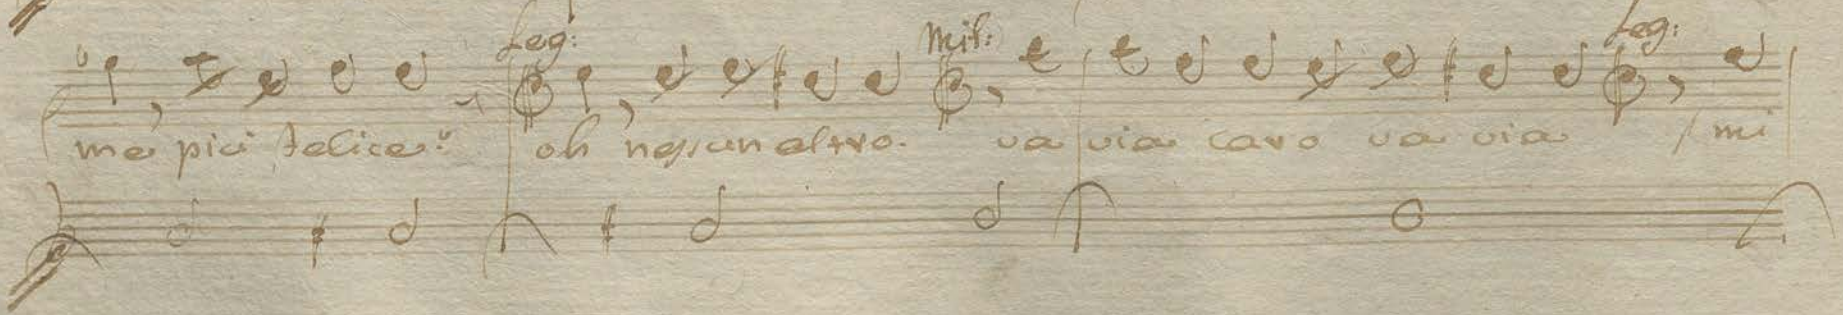 Leg: Mil: Leg:
me più felice? oh nessun altro. va via caro va via mi